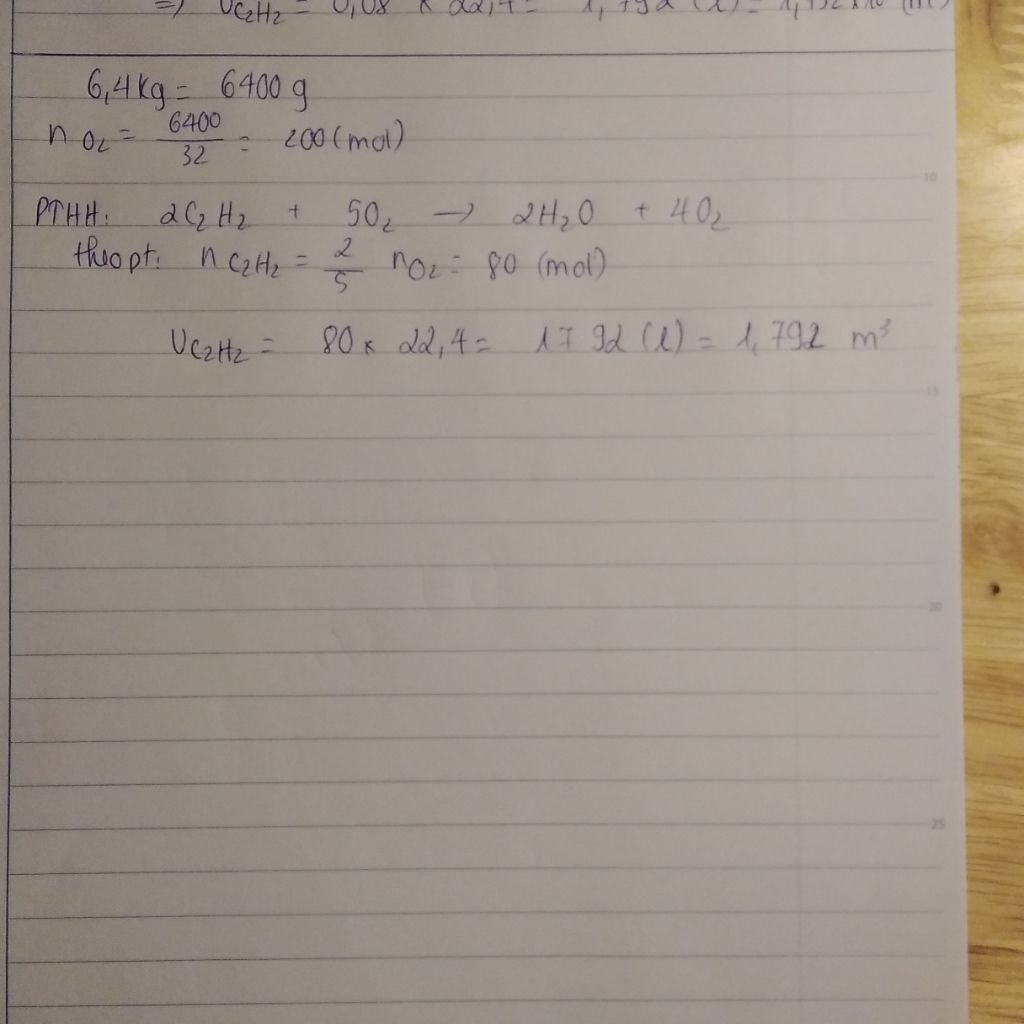 => VC2H2 = 0,08 x 22,4 = 1,792 (l) =
6,4kg = 6400 g
nO2 = 6400/32 = 200 (mol)
PTHH: 2C2H2 + 5O2 → 2H2O + 4O2
theo pt: nC2H2 = 2/5 nO2 = 80 (mol)
VC2H2 = 80 x 22,4 = 1792 (l) = 1,792 m³
10
15
20
25